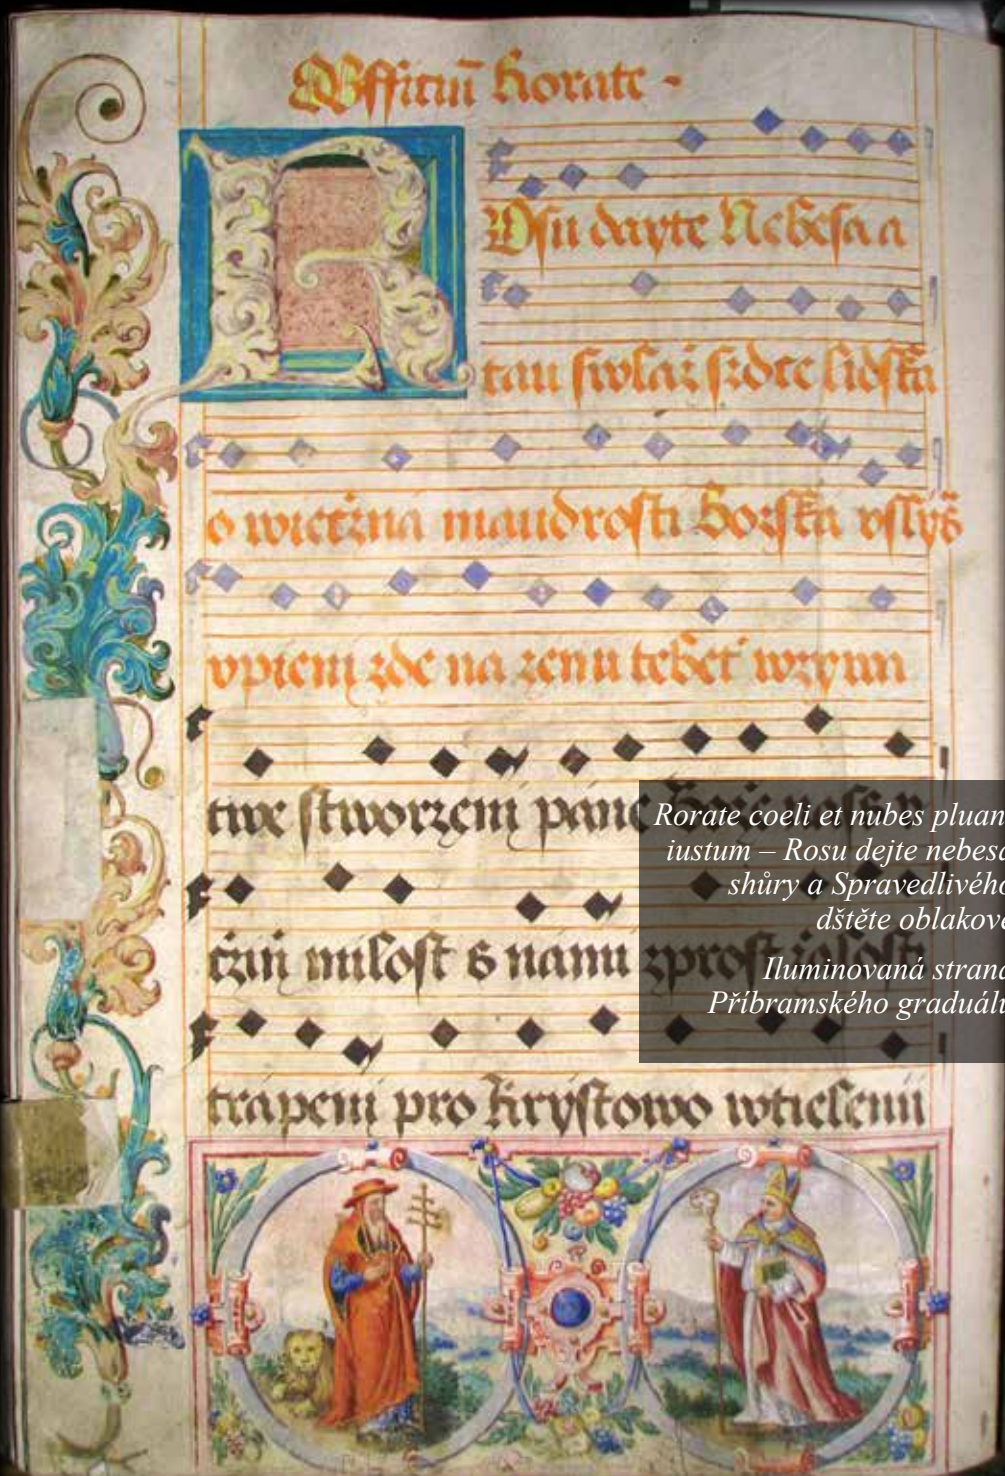 Officiū Rorate -
ROsu dayte Nebesa a
tau swlaž srdce lidská
o wiečzná maudrosti Božská vslyš
vpieni zde na zemi tebeť wzywa
twe stworzeni pane Bože
czin milost s námi zprost žalosti
trápeni pro Krystowo wtieleni
Rorate coeli et nubes pluan
iustum – Rosu dejte nebesa
shůry a Spravedlivého
dštěte oblakové
Iluminovaná strana
Příbramského graduálu